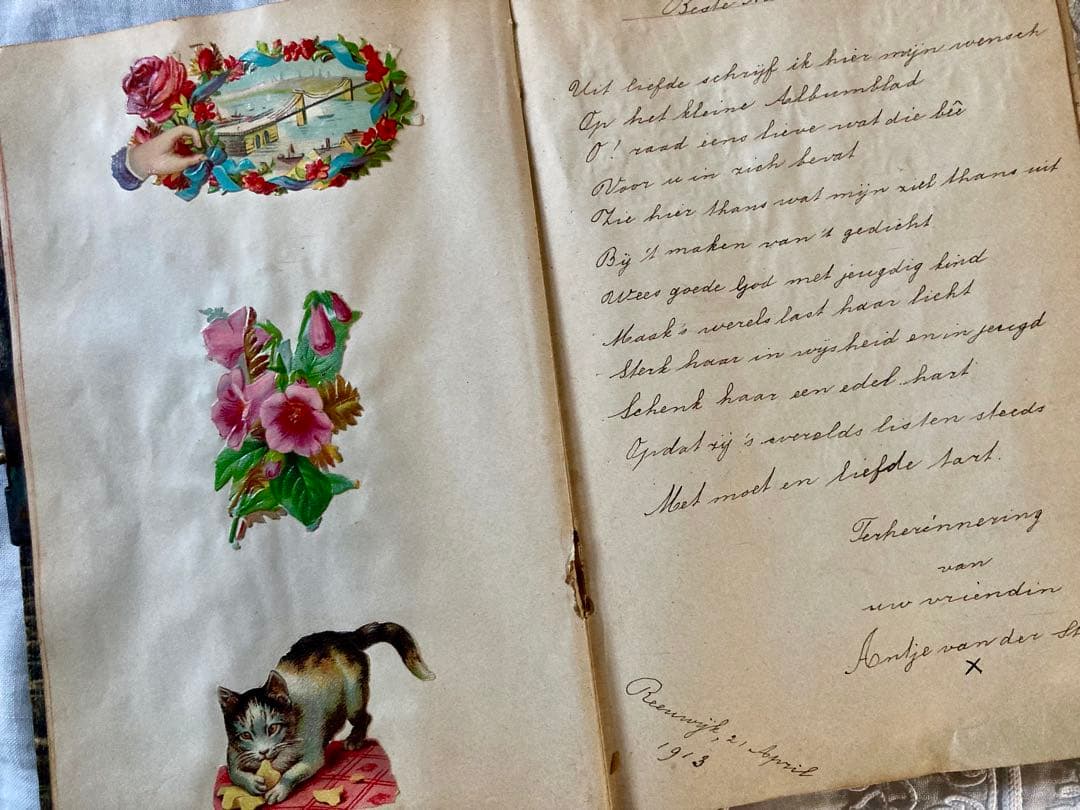 Beste
Uit liefde schrijf ik hier mijn wensch
Op het kleine Albumblad
O! raad eens lieve wat die bêê
Voor u in zich bevat
Zie hier thans wat mijn ziel thans uit
Bij 't maken van 't gedicht
Wees goede God met jeugdig kind
Maak's werels last haar licht
Sterk haar in wijsheid en in jeugd
Schenk haar een edel hart
Opdat zij 's werelds listen steeds
Met moet en liefde tart.
Terherénnering
van
uw vriendin
Antje van der
X
Reeuwijk, 21 April
1913